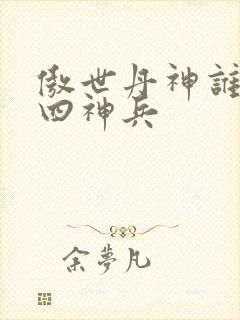 傲世丹神誰
四神兵
余夢凡